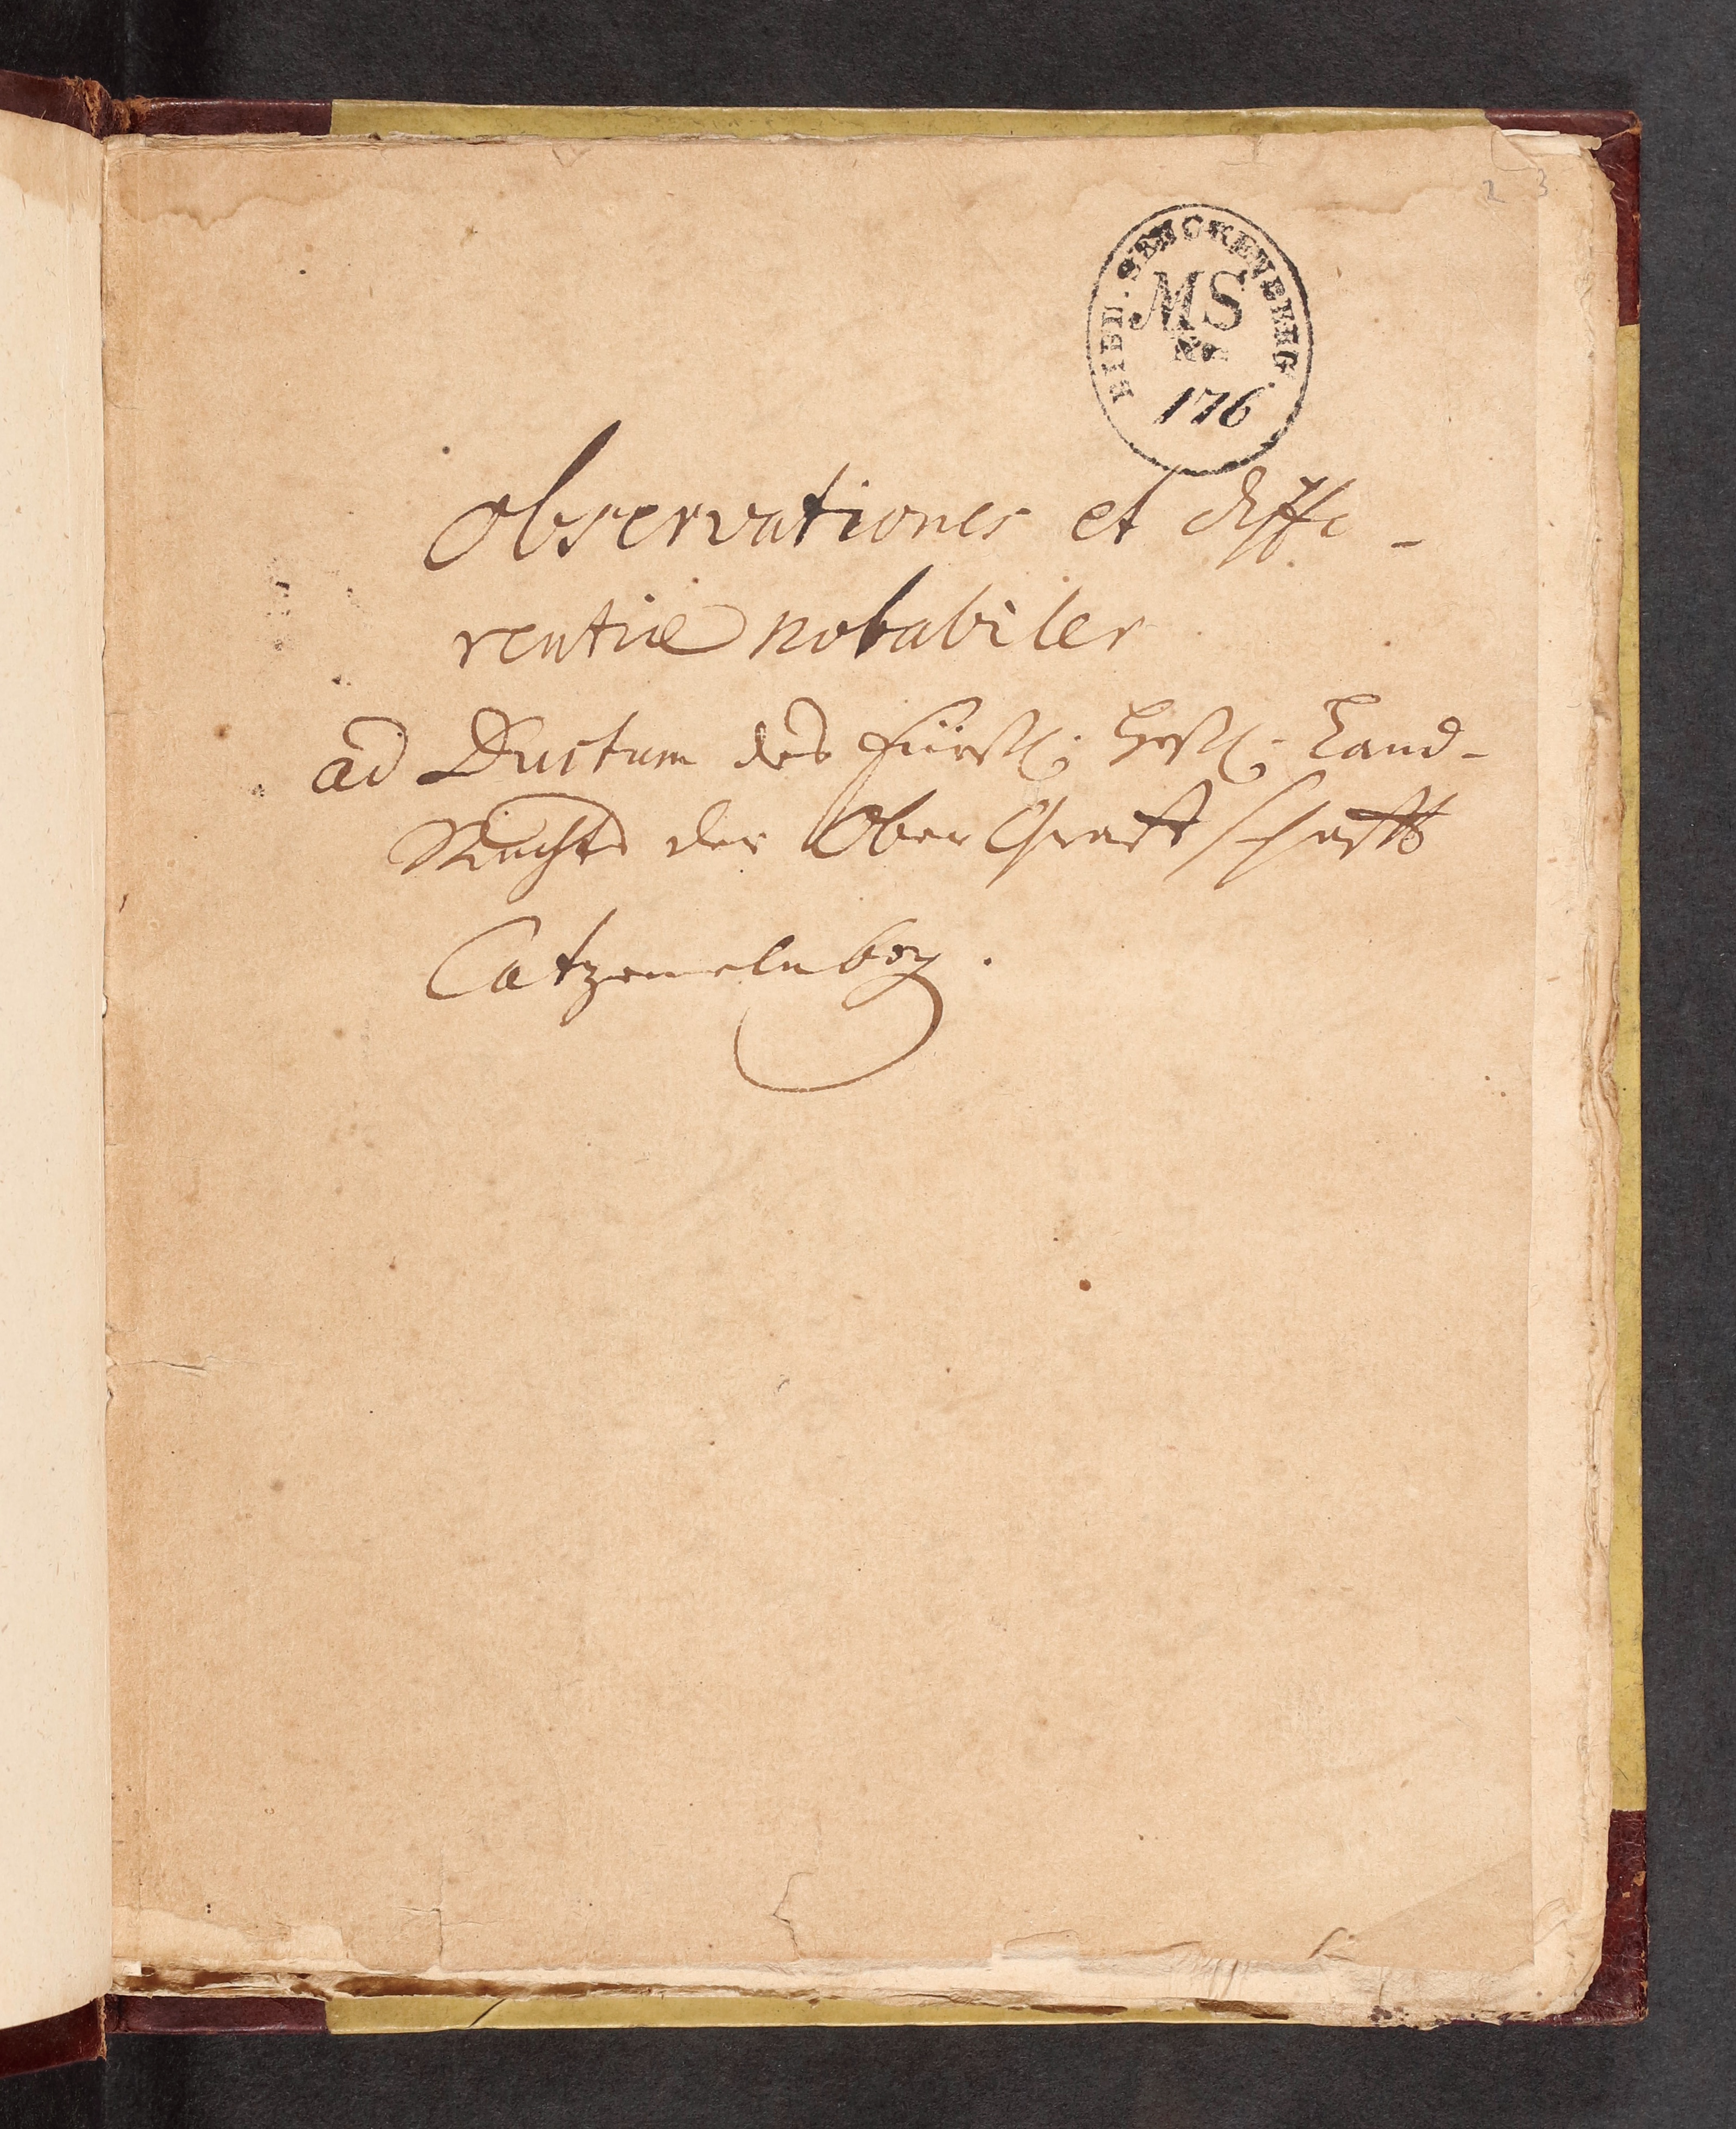 2 3
BIBL. SENCKENBERG.
MS
No
176
Observationes et diffe-
rentiæ notabiles
ad Ductum des Fürstl: Heßl: Land-
Rechts der Ober Graffschafft
Catzenelnbog.